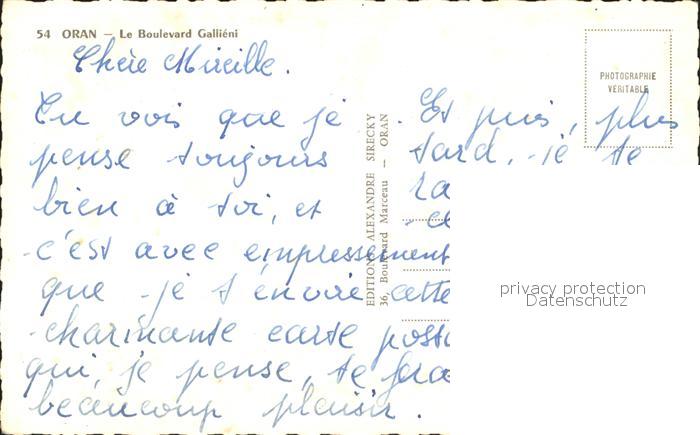 54 ORAN – Le Boulevard Galliéni
Chère Mireille.
Tu vois que je
pense toujours
bien à toi, et
c'est avec empressement
que je t'envoie cette
charmante carte posta
qui, je pense, te fera
beaucoup plaisir.
. Et puis, plus
tard, je te
ra
EDITIONS ALEXANDRE SIRECKY
36, Boulevard Marceau – ORAN
PHOTOGRAPHIE
VÉRITABLE
privacy protection
Datenschutz